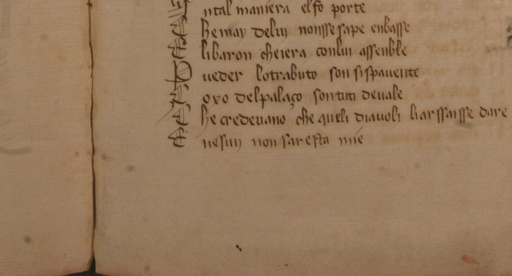 intal maniera elfo porte
he may deluy nonsse sape enbasse
li baron cheiera conlui assenble
veder lotrabuto son sispavente
oxo delpalaço son tuti devale
he credevano che queli diavoli liarssaisse dare
nesun non saresta mie